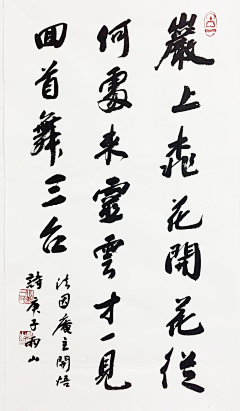 巖上桃花開花從
何處來靈雲才一見
回首舞三台
法因庵主開悟
詩庚子雨山